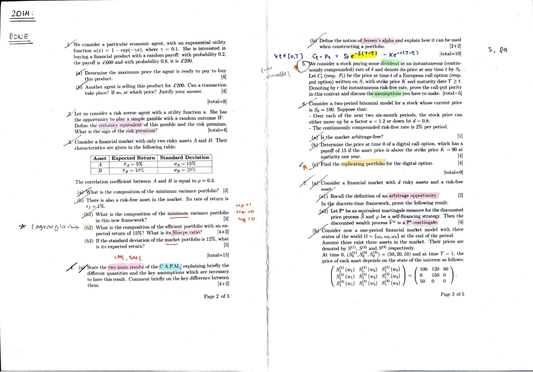 2014:
DONE
1. We consider a particular economic agent, with an exponential utility
function u(x) = 1 − exp(−γx), where γ = 0.1. She is interested in
buying a financial product with a random payoff: with probability 0.2,
the payoff is £600 and with probability 0.8, it is £200.
(a) Determine the maximum price the agent is ready to pay to buy
this product. [4]
(b) Another agent is selling this product for £200. Can a transaction
take place? If so, at which price? Justify your answer. [4]
[total=8]
2. Let us consider a risk averse agent with a utility function u. She has
the opportunity to play a simple gamble with a random outcome W.
Define the certainty equivalent of this gamble and the risk premium.
What is the sign of the risk premium? [total=4]
3. Consider a financial market with only two risky assets A and B. Their
characteristics are given in the following table:
Asset Expected Return Standard Deviation
A
B
The correlation coefficient between A and B is equal to ρ = 0.3.
(a) What is the composition of the minimum variance portfolio? [3]
(b) There is also a risk-free asset in the market. Its rate of return is
(b1) What is the composition of the minimum variance portfolio
in this new framework? [3]
(b2) What is the composition of the efficient portfolio with an ex-
pected return of 15%? What is its Sharpe ratio? [4+2]
(b3) If the standard deviation of the market portfolio is 12%, what
is its expected return? [3]
[total=15]
CML, SML
4. (a) State the two main results of the C.A.P.M., explaining briefly the
different quantities and the key assumptions which are necessary
to have this result. Comment briefly on the key difference between
them. [4+2]
Page 2 of 5
(b) Define the notion of Jensen's alpha and explain how it can be used
when constructing a portfolio. [2+2]
[total=10]
5. We consider a stock paying some dividend at an instantaneous (contin-
uously compounded) rate of δ and denote its price at any time t by St.
Let Ct (resp. Pt) be the price at time t of a European call option (resp.
put option) written on S, with strike price K and maturity date T ≥ t.
Denoting by r the instantaneous risk-free rate, prove the call-put parity
in this context and discuss the assumptions you have to make. [total=5]
6. Consider a two-period binomial model for a stock whose current price
is S0 = 100. Suppose that:
- Over each of the next two six-month periods, the stock price can
either move up by a factor u = 1.2 or down by d = 0.8;
- The continuously compounded risk-free rate is 2% per period.
(a) Is the market arbitrage-free? [1]
(b) Determine the price at time 0 of a digital call option, which has a
payoff of 15 if the asset price is above the strike price K = 90 at
maturity one year. [4]
(c) Find the replicating portfolio for the digital option. [4]
[total=9]
7. (a) Consider a financial market with risky assets and a risk-free
asset.
(a1) Recall the definition of an arbitrage opportunity. [2]
In the discrete-time framework, prove the following result:
(a2) Let P* be an equivalent martingale measure for the discounted
price process S and φ be a self-financing strategy. Then the
discounted wealth process V is a P*-martingale. [4]
(b) Consider now a one-period financial market model with three
states of the world Ω = {ω1, ω2, ω3} at the end of the period.
Assume there exist three assets in the market. Their prices are
denoted by S(1), S(2) and S(3) respectively.
At time 0, = (50, 20, 10) and at time T = 1, the
price of each asset depends on the state of the universe as follows:
100 120 80
0 150 0
50 0 0
Page 3 of 5